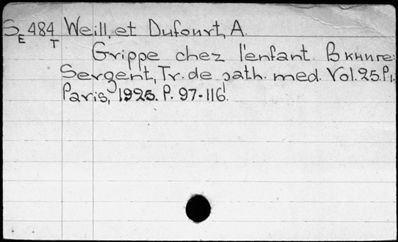 S 484 Weill, et Dufourt, A.
E T
Grippe chez l'enfant. В книге:
Sergent, Tr. de path. med. Vol. 25. P.1.
Paris, 1925. P. 97-116.